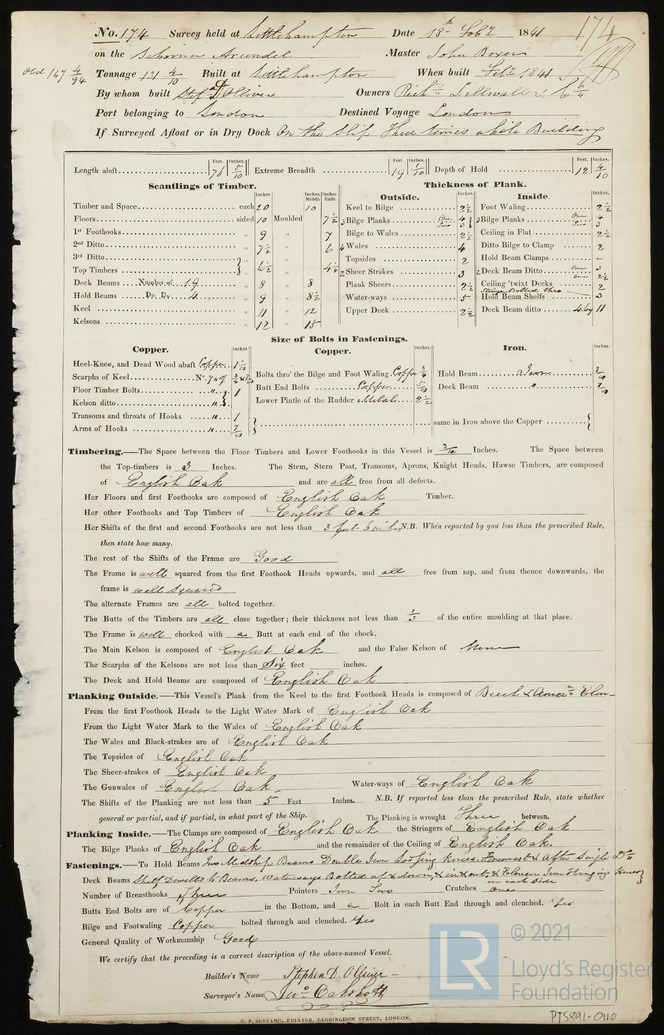 No. 174 Survey held at Littlehampton Date 18th Feby 1841 174
on the Schooner Arundel Master John Boxer
Old 147 4/94 Tonnage 131 4/10 Built at Littlehampton When built Feby 1841
By whom built Stepn D Olliver Owners Richd
Port belonging to London Destined Voyage London
If Surveyed Afloat or in Dry Dock On the Slip Three times while Building
Length aloft Feet. 76 Inches. 5/10 Extreme Breadth Feet 19 Inches. 1/10 Depth of Hold Feet. 12 Inches. 4/10
Scantlings of Timber. Thickness of Plank.
Inches Inches Middle Inches Ends Outside. Inches. Inside. Inches.
Timber and Space each 20 10 Keel to Bilge 2½ Foot Waling 2½
Floors sided 10 Moulded 7½ Bilge Planks Bilge Planks
1st Foothooks 9 " 7 Bilge to Wales 2½ Ceiling in Flat 2½
2nd Ditto 7½ " 6 Wales 4 Ditto Bilge to Clamp 2
3rd Ditto Topsides 2 Hold Beam Clamps
Top Timbers 6½ Sheer Strakes 3 Deck Beam Ditto
Deck Beams Number of 19 8 " 8 Plank Sheers 2½ Ceiling 'twixt Decks 2
Hold Beams Do. Do. 4 9 " 8½ Water-ways 5 Hold Beam Shelfs 3
Keel 11 " 12 Upper Deck 2½ Deck Beam ditto 4 by 11
Kelsons 12 " 15
Size of Bolts in Fastenings.
Copper. Inches Copper. Inches Iron. Inches
Heel-Knee, and Dead Wood abaft Copper Bolts thro' the Bilge and Foot Waling Copper Hold Beam Iron
Scarphs of Keel No 7 of Butt End Bolts Copper Deck Beam "
Floor Timber Bolts " 1 Lower Pintle of the Rudder Metal 2½
Kelson ditto "
Transoms and throats of Hooks " 1 same in Iron above the Copper
Arms of Hooks "
Timbering.—The Space between the Floor Timbers and Lower Foothooks in this Vessel is Inches. The Space between
the Top-timbers is 3 Inches. The Stem, Stern Post, Transoms, Aprons, Knight Heads, Hawse Timbers, are composed
of English Oak and are all free from all defects.
Her Floors and first Foothooks are composed of English Oak Timber.
Her other Foothooks and Top Timbers of English Oak
Her Shifts of the first and second Foothooks are not less than 3 feet N.B. When reported by you less than the prescribed Rule,
then state how many.
The rest of the Shifts of the Frame are Good
The Frame is well squared from the first Foothook Heads upwards, and all free from sap, and from thence downwards, the
frame is well squared
The alternate Frames are all bolted together.
The Butts of the Timbers are all close together; their thickness not less than 1/3 of the entire moulding at that place.
The Frame is well chocked with a Butt at each end of the chock.
The Main Kelson is composed of English Oak and the False Kelson of None
The Scarphs of the Kelsons are not less than Six feet inches.
The Deck and Hold Beams are composed of English Oak
Planking Outside.—This Vessel's Plank from the Keel to the first Foothook Heads is composed of Beech & Amern Elm
From the first Foothook Heads to the Light Water Mark of English Oak
From the Light Water Mark to the Wales of English Oak
The Wales and Black-strakes are of English Oak
The Topsides of English Oak
The Sheer-strakes of English Oak
The Gunwales of English Oak Water-ways of English Oak
The Shifts of the Planking are not less than 5 Feet Inches. N.B. If reported less than the prescribed Rule, state whether
general or partial, and if partial, in what part of the Ship. The Planking is wrought Three between.
Planking Inside.—The Clamps are composed of English Oak the Stringers of English Oak
The Bilge Planks of English Oak and the remainder of the Ceiling of English Oak.
Fastenings.—To Hold Beams Two Midship Beams Double Iron hooping knees Foremost & After Single Do
Deck Beams Shelf Dowelled to Beams, Waterways Bolted up & down, & in & out, & Eleven Iron Hanging knees
in each side
Number of Breasthooks Three Pointers Iron Two Crutches one
Butts End Bolts are of Copper in the Bottom, and a Bolt in each Butt End through and clenched. Yes
Bilge and Footwaling Copper bolted through and clenched. Yes
General Quality of Workmanship Good
We certify that the preceding is a correct description of the above-named Vessel.
Builder's Name Stephen D. Olliver
Surveyor's Name Jno Oakshott
C. F. SEYFANG, PRINTER, FARRINGDON STREET, LONDON.
LR © 2021
Lloyd's Register
Foundation
PTS891-0110